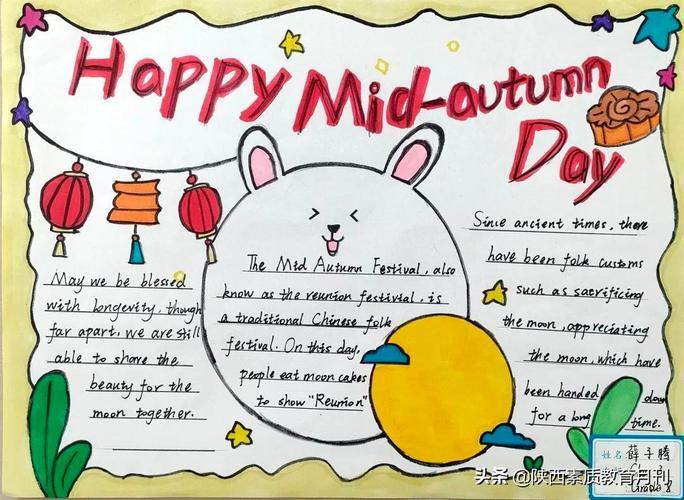 Happy Mid-autumn
Day
May we be blessed
with longevity, though
far apart, we are still
able to share the
beauty for the
moon together.
The Mid Autumn Festival, also
know as the reunion festivial, is
a traditional Chinese folk
festival. On this day,
people eat moon cakes
to show "Reunion"
Since ancient times, there
have been folk customs
such as sacrificing
the moon, appreciating
the moon, which have
been handed down
for a long time.
姓名 薛子腾
Grade 8
头条 @陕西素质教育月刊